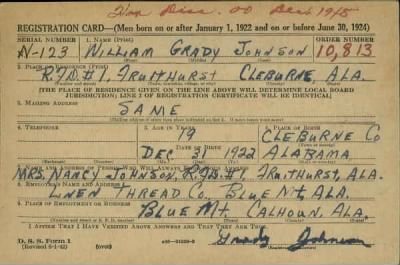 Hon Disc. 00 Dec 1945
REGISTRATION CARD—(Men born on or after January 1, 1922 and on or before June 30, 1924)
SERIAL NUMBER 1. NAME (Print) ORDER NUMBER
N-123 WILLIAM GRADY JOHNSON 10,813
(First) (Middle) (Last)
2. PLACE OF RESIDENCE (Print)
R.F.D.#1, FRUITHURST CLEBURNE, ALA.
[THE PLACE OF RESIDENCE GIVEN ON THE LINE ABOVE WILL DETERMINE LOCAL BOARD
JURISDICTION; LINE 2 OF REGISTRATION CERTIFICATE WILL BE IDENTICAL]
3. MAILING ADDRESS
SAME
4. TELEPHONE 5. AGE IN YEARS 6. PLACE OF BIRTH
19 CLEBURNE CO
DATE OF BIRTH
DEC 31 1922 ALABAMA
MRS. NANCY JOHNSON, R.F.D.#1, FRUITHURST, ALA.
8. EMPLOYER'S NAME AND ADDRESS
LINEN THREAD CO. BLUE MT, ALA.
9. PLACE OF EMPLOYMENT OR BUSINESS
BLUE MT. CALHOUN, ALA.
I AFFIRM THAT I HAVE VERIFIED ABOVE ANSWERS AND THAT THEY ARE TRUE.
D. S. S. Form 1
(Revised 6-1-42) (over)
Grady Johnson